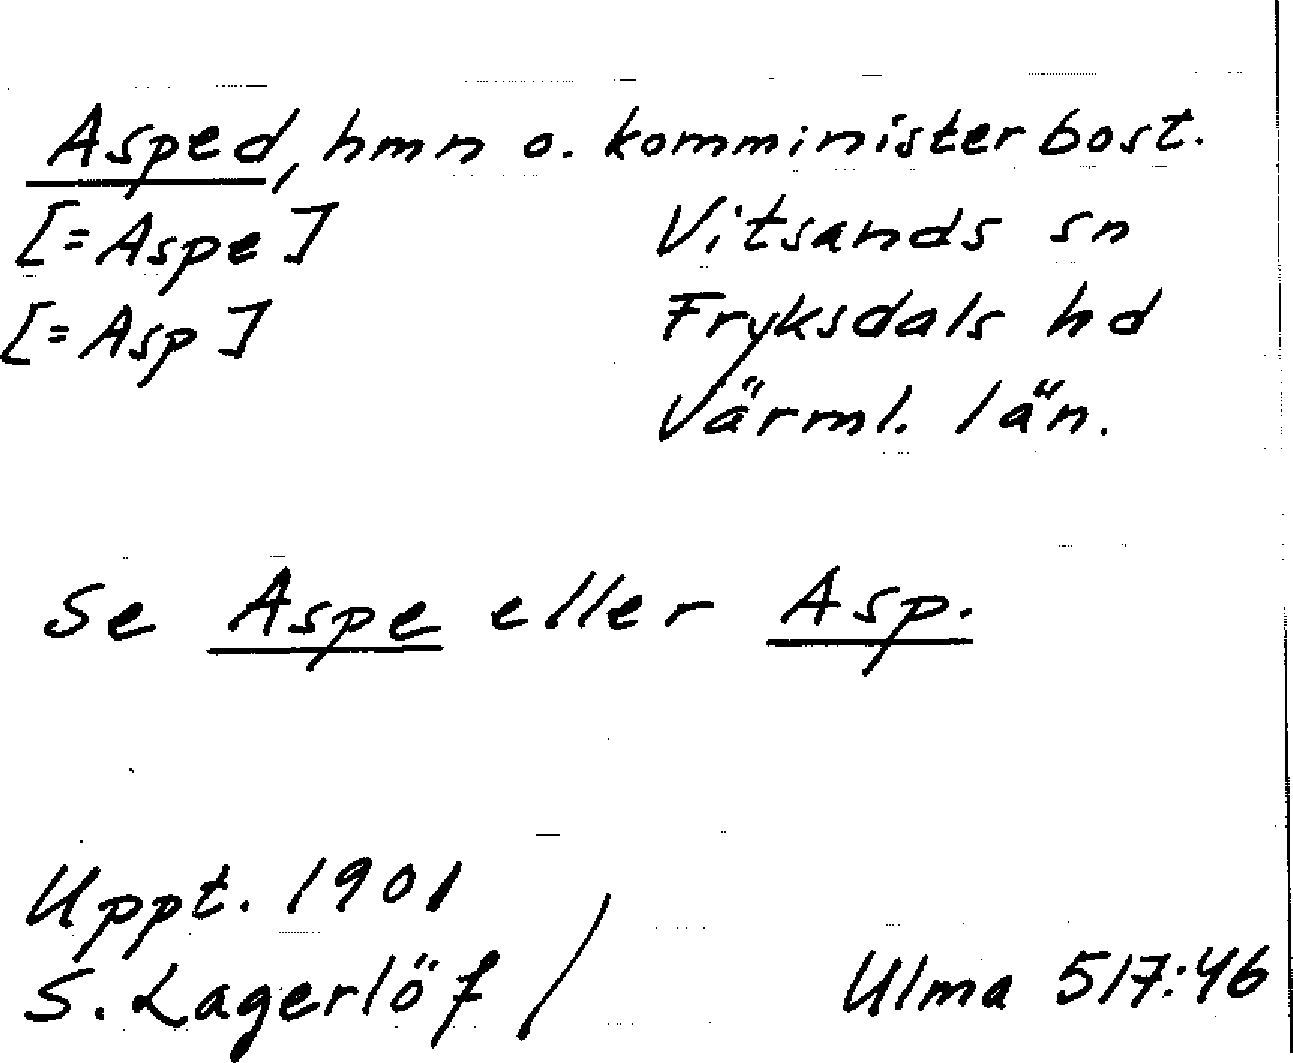 Asped, hmn o. komminister bost.
[=Aspe] Vitsands sn
[=Asp] Fryksdals hd
Värml. län.
Se Aspe eller Asp.
Uppt. 1901
S. Lagerlöf / Ulma 517:46